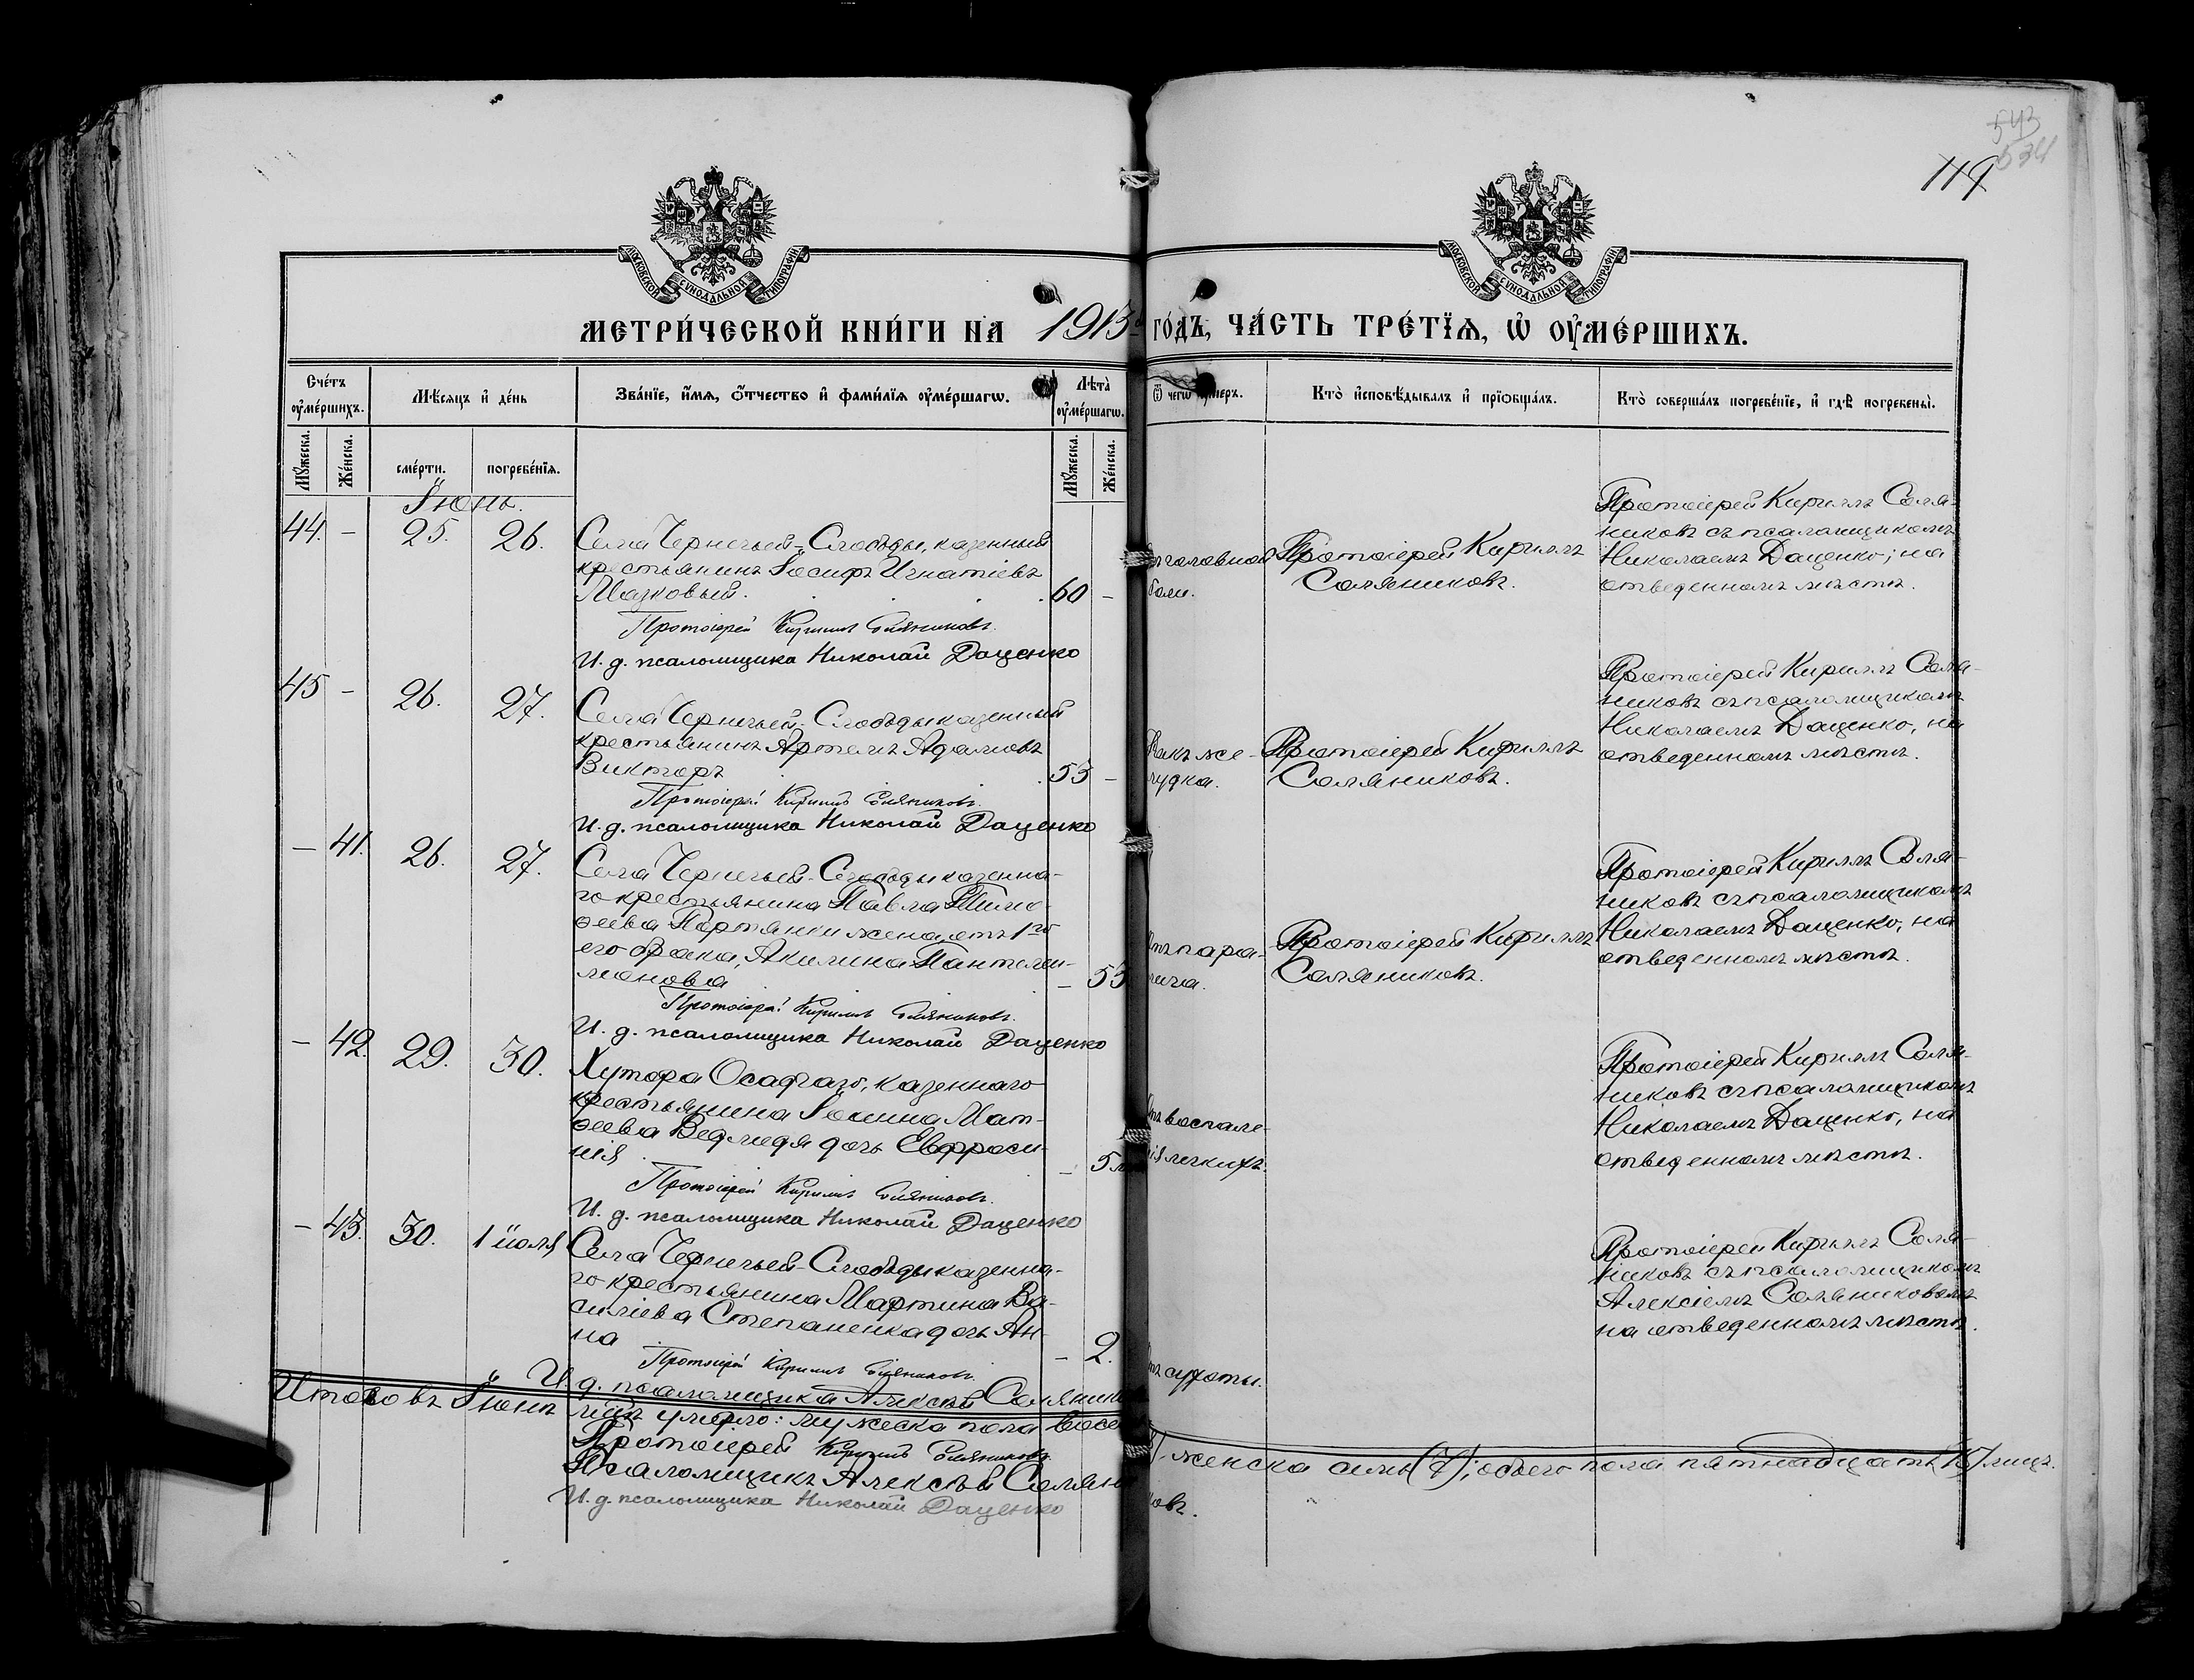 543
534
119
МОСКОВСКОЙ СУНОДАЛЬНОЙ ТИПОГРАФІИ
МОСКОВСКОЙ СУНОДАЛЬНОЙ ТИПОГРАФІИ
МЕТРИ́ЧЕСКОЙ КНИ́ГИ НА 1913 й ГО́ДЪ, ЧА́СТЬ ТРЕ́ТІѦ, Ѡ ОУ҆МЕ́РШИХЪ.
Сче́тъ оу҆ме́ршихъ.
Мѣ́сяцъ и҆ де́нь
Зва́нїе, и҆́мя, ѻ҆́тчество и҆ фами́лїя оу҆ме́ршагѡ.
Лѣта̀ оу҆ме́ршагѡ.
Ѿ чегѡ̀ оу҆́меръ.
Кто̀ и҆сповѣ́дывалъ и҆ прїѡбща́лъ.
Кто̀ соверша́лъ погребе́нїе, и҆ гдѣ̀ погребены̀.
Мꙋ́жеска.
Же́нска.
сме́рти.
погребе́нїя.
Мꙋ́жеска.
Же́нска.
Іюнь.
44. – 25. 26.
Села Чернечьей-Слободы, казенный
крестьянинъ Іосифъ Игнатіевъ
Мазковый. 60 –
Протоіерей Кириллъ Соляниковъ.
И. д. псаломщика Николай Даценко
головной
боли.
Протоіерей Кириллъ
Соляниковъ.
Протоіерей Кириллъ Соля-
никовъ съ псаломщикомъ
Николаемъ Даценко; на
отведенномъ мѣстѣ.
45 – 26. 27.
Села Чернечьей-Слободы казенный
крестьянинъ Артемъ Адамовъ
Викторъ 53 –
Протоіерей Кириллъ Соляниковъ.
И. д. псаломщика Николай Даценко
Ракъ же-
лудка.
Протоіерей Кириллъ
Соляниковъ.
Протоіерей Кириллъ Соля-
никовъ съ псаломщикомъ
Николаемъ Даценко, на
отведенномъ мѣстѣ.
– 41. 26. 27.
Села Чернечьей-Слободы казенна-
го крестьянина Павла Тимо-
ѳеева Партянки жена отъ 1го
его брака, Акилина Пантелеи-
монова – 53
Протоіерей Кириллъ Соляниковъ.
И. д. псаломщика Николай Даценко
пара-
лича.
Протоіерей Кириллъ
Соляниковъ.
Протоіерей Кириллъ Соля-
никовъ съ псаломщикомъ
Николаемъ Даценко, на
отведенномъ мѣстѣ.
– 42. 29. 30.
Хутора Осадчаго, казеннаго
крестьянина Іоанна Мат-
ѳеева Ведмедя дочь Евфроси-
нія – 5 м
Протоіерей Кириллъ Соляниковъ.
И. д. псаломщика Николай Даценко
воспале-
нія легкихъ.
Протоіерей Кириллъ Соля-
никовъ съ псаломщикомъ
Николаемъ Даценко, на
отведенномъ мѣстѣ.
– 43. 30. 1 іюля
Села Чернечьей-Слободы казенна-
го крестьянина Мартина Ва-
силіева Степаненка дочь Ан-
на – 2.
Протоіерей Кириллъ Соляниковъ.
И. д. псаломщика Алексѣй Соляник
сухоты.
Протоіерей Кириллъ Соля-
никовъ съ псаломщикомъ
Алексіемъ Соляниковымъ
на отведенномъ мѣстѣ.
Итого въ Іюнѣ мѣс. умерло: мужеска пола восе
женска семь (7); обоего пола пятнадцать (15) лицъ.
Протоіерей Кириллъ Соляниковъ.
Псаломщикъ Алексѣй Соляни
ковъ.
И. д. псаломщика Николай Даценко